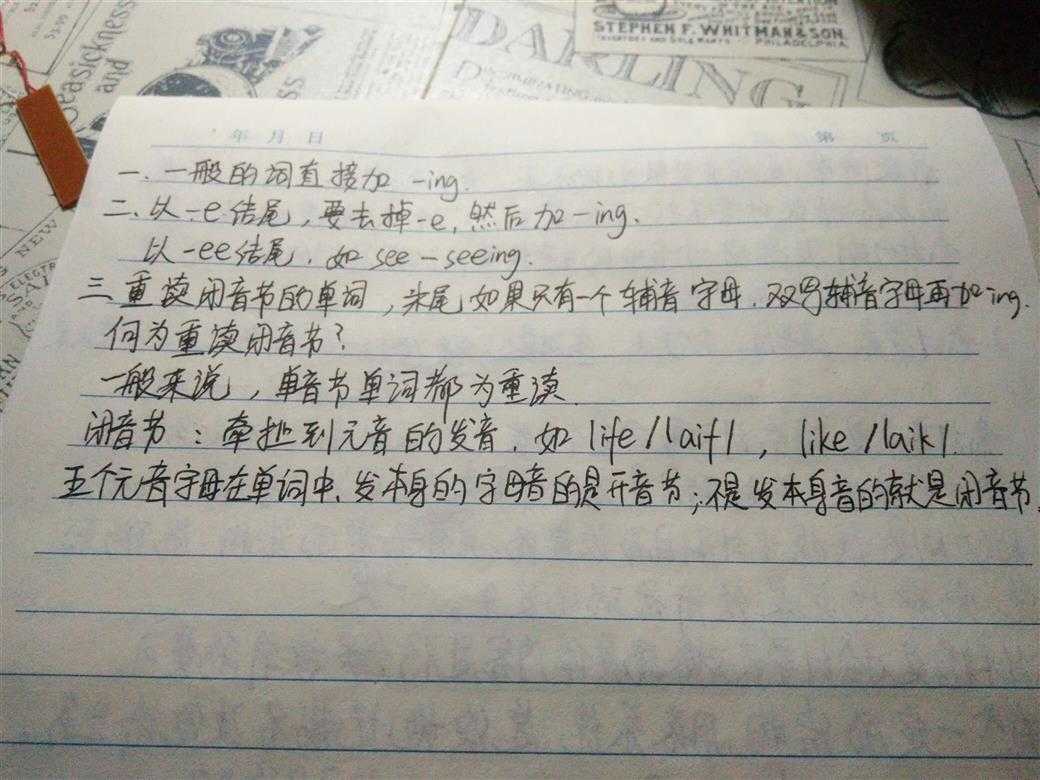 STEPHEN F. WHITMAN & SON.
PHILADELPHIA.
DARLING
Seasickness
and
年 月 日 第 页
一. 一般的词直接加 -ing.
二、以-e结尾,要去掉-e,然后加-ing.
以-ee结尾.如 see—seeing.
三.重读闭音节的单词,末尾如果只有一个辅音字母.双写辅音字母再加-ing.
何为重读闭音节?
一般来说,单音节单词都为重读.
闭音节:牵扯到元音的发音.如 life /laif/ , like /laik/.
五个元音字母在单词中、发本身的字母音的是开音节;不是发本身音的就是闭音节.